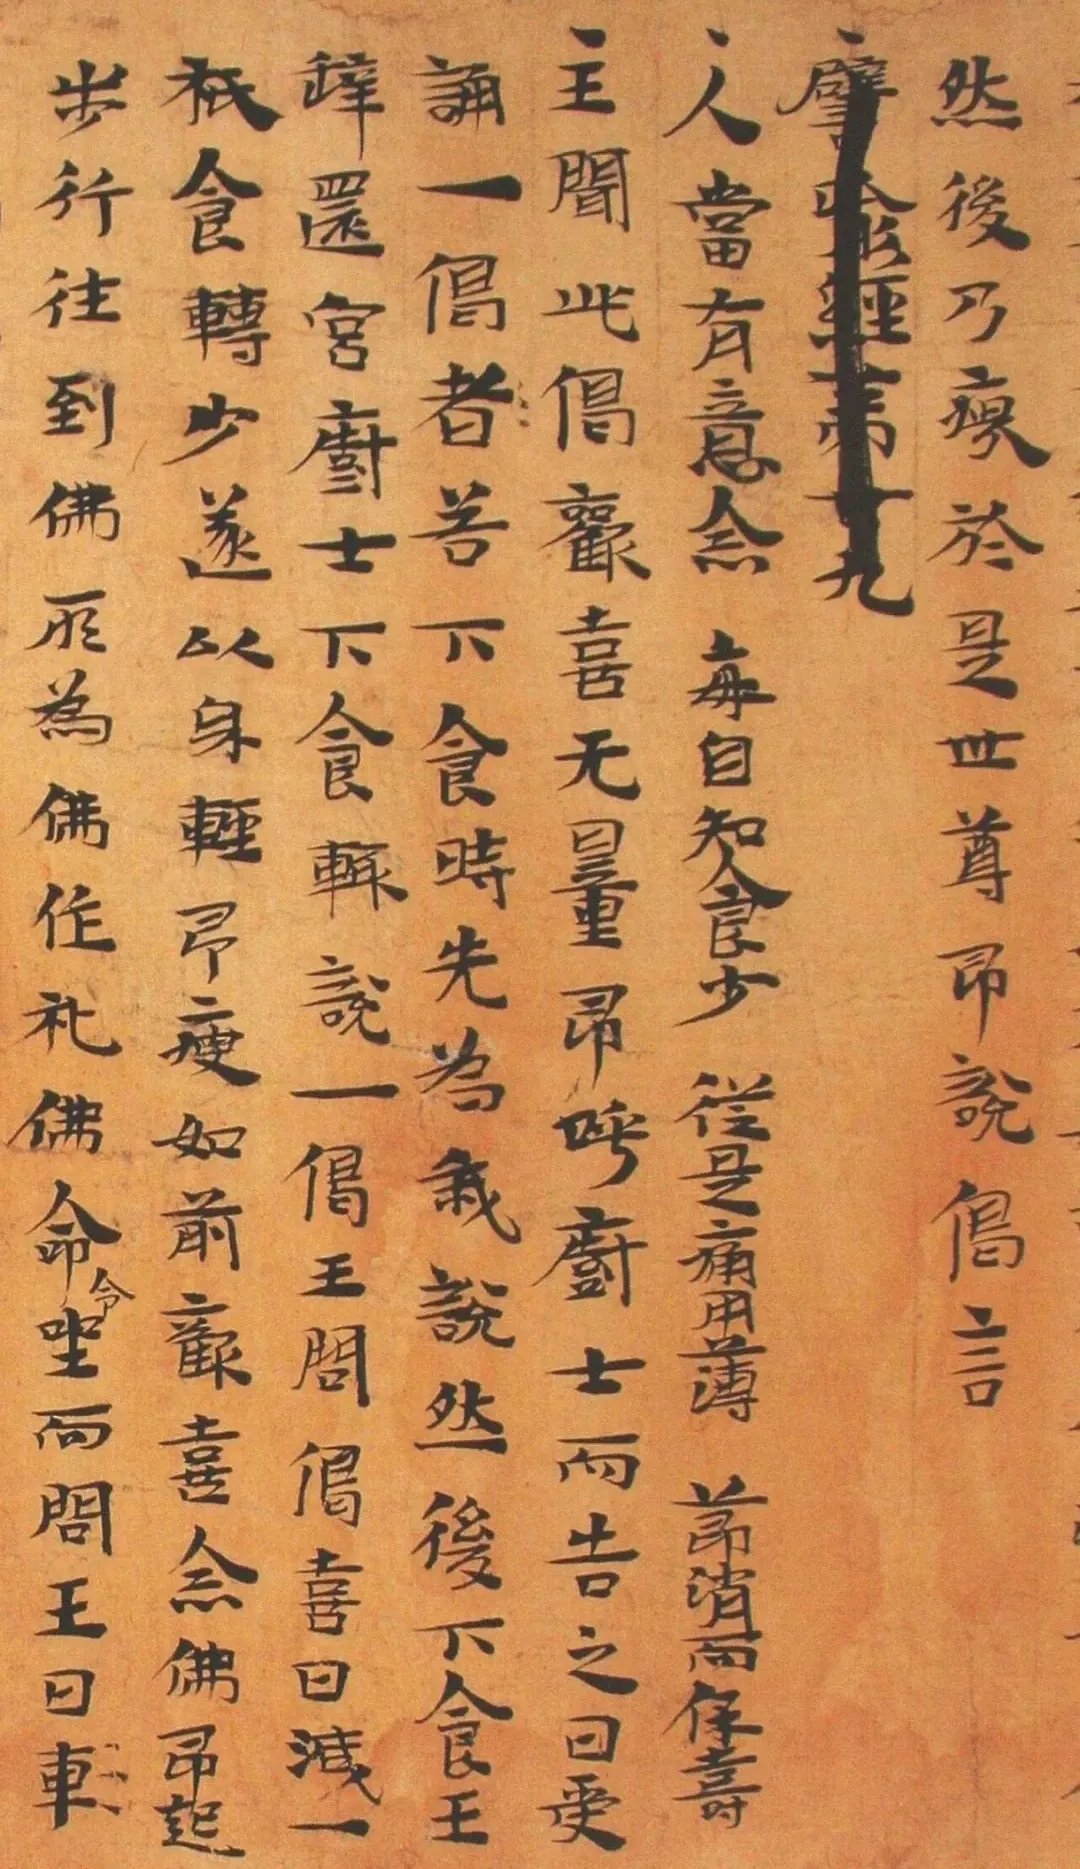 然後乃瘦於是世尊即說偈言
譬喻經第廿九
人當有意念 每自知食少 從是痛用薄 節消而保壽
王聞此偈歡喜无量即呼廚士而告之曰受
誦一偈者若下食時先為我說然後下食王
辝還宮廚士下食輙說一偈王問偈喜日減一
秖食轉少遂以身輕即瘦如前歡喜念佛即起
步行往到佛所為佛作礼佛命令坐而問王曰車